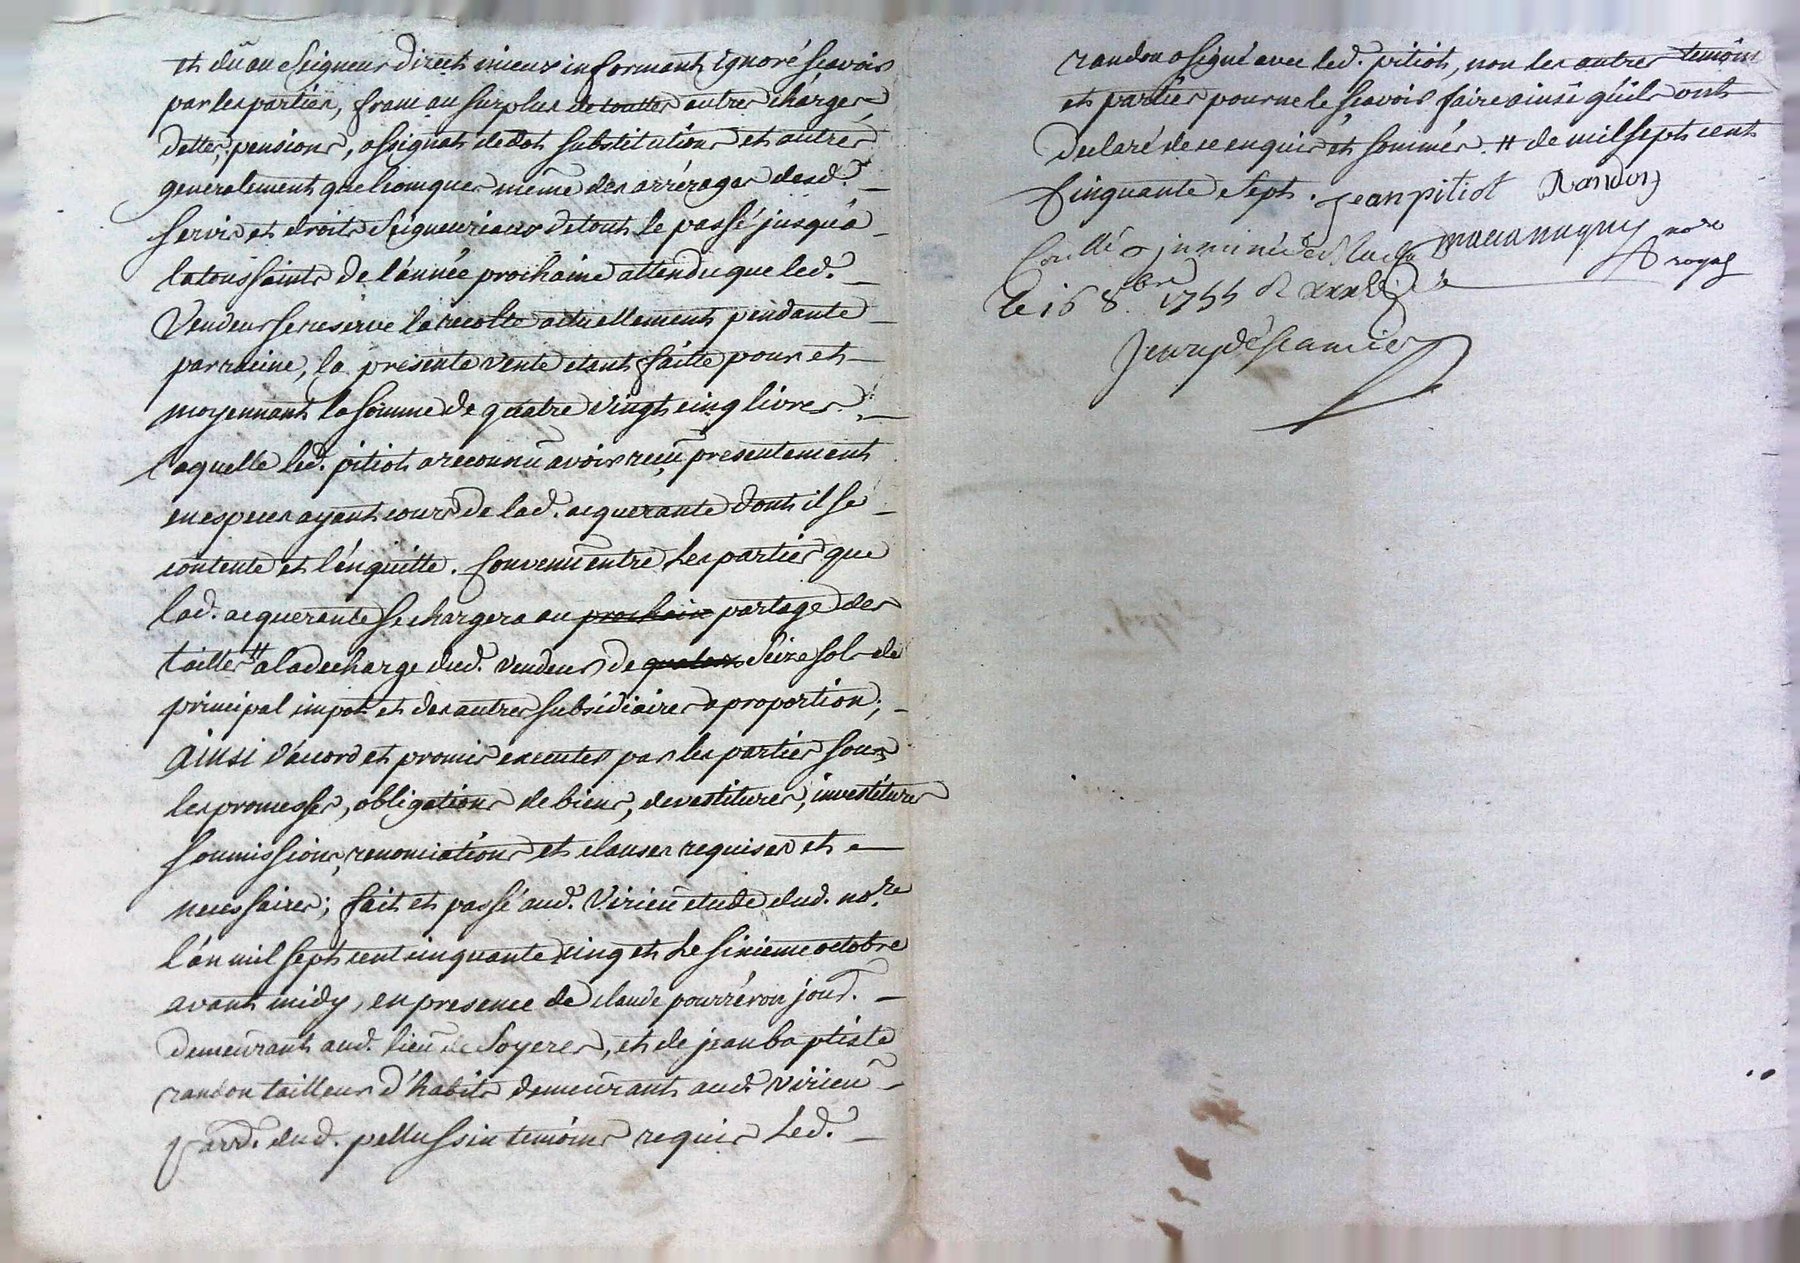 et dû au Seigneur direct mieux informant ignoré sçavoir
par les parties, franc au surplus de touttes autres charges,
dettes, pensions, assignat de dot substitutions et autres
generalement quelconques même des arrérages desd.
servis et droits Seigneuriaux de tout le passé jusqu'a
la toussaints de l'année prochaine attendu que led.
Vendeur se reserve la recolte actuellement pendante
par racine, la présente vente etant faitte pour et
moyennant la somme de quatre vingt cinq livres
laquelle led. pitiot a reconnu avoir reçu presentement
en especes ayant cours de lad. acquerante dont il se
contente et l'en quitte. Convenu entre les parties que
lad. acquerante se chargera au prochain partage des
tailles # a la decharge dud. vendeur de seize sols de
principal impot et des autres subsidiaires a proportion;
ainsi d'accord et promis executer par les parties sous
les promesses, obligations de biens, devestitures, investitures
soumissions, renonciations et clauses requises et
necessaires; fait et passé aud. Virieu etude dud. no.re
l'an mil sept cent cinquante cinq et le sixieme octobre
avant midy, en presence de claude pourréron jour.
demeurant aud. lieu de Soyeres, et de jean baptiste
randon tailleur d'habits demeurant aud. virieu
parr. dud. pellussin temoins requis led.
randon a signé avec led. pitiot, non les autres temoins
et parties pour ne le sçavoir faire ainsi qu'ils ont
declaré de ce enquis et sommés. # de mil sept cent
cinquante sept. jean pitiot Randon
no.re
royal
le 16 8bre 1755